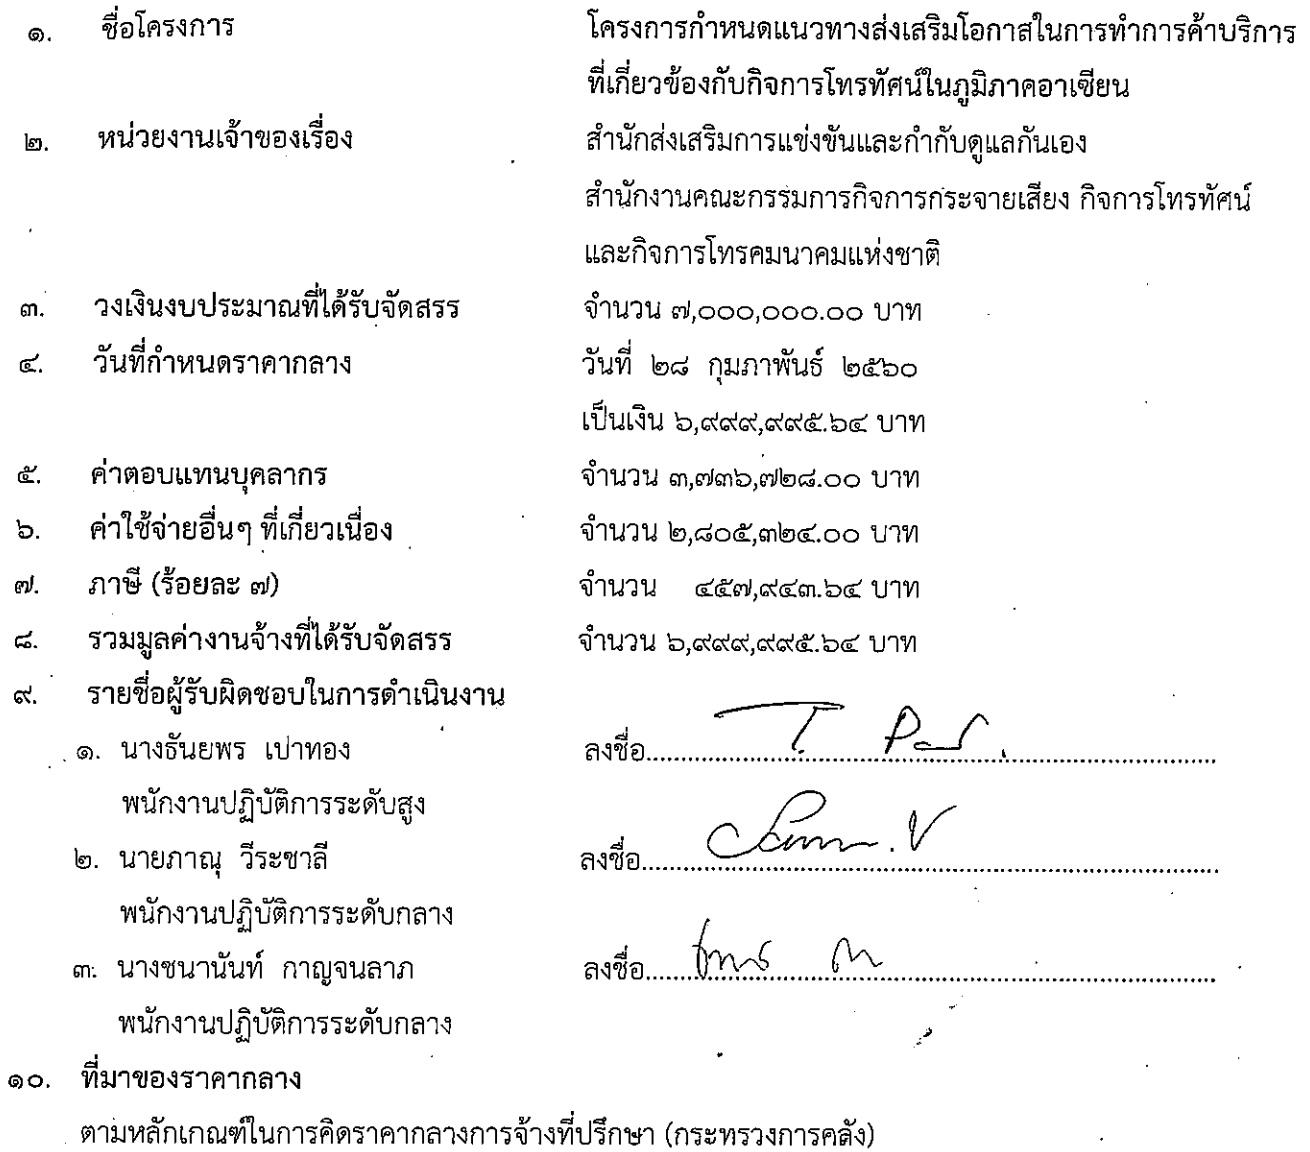 ๑. ชื่อโครงการ โครงการกำหนดแนวทางส่งเสริมโอกาสในการทำการค้าบริการ
ที่เกี่ยวข้องกับกิจการโทรทัศน์ในภูมิภาคอาเซียน
๒. หน่วยงานเจ้าของเรื่อง สำนักส่งเสริมการแข่งขันและกำกับดูแลกันเอง
สำนักงานคณะกรรมการกิจการกระจายเสียง กิจการโทรทัศน์
และกิจการโทรคมนาคมแห่งชาติ
๓. วงเงินงบประมาณที่ได้รับจัดสรร จำนวน ๗,๐๐๐,๐๐๐.๐๐ บาท
๔. วันที่กำหนดราคากลาง วันที่ ๒๘ กุมภาพันธ์ ๒๕๖๐
เป็นเงิน ๖,๙๙๙,๙๙๕.๖๔ บาท
๕. ค่าตอบแทนบุคลากร จำนวน ๓,๗๓๖,๗๒๘.๐๐ บาท
๖. ค่าใช้จ่ายอื่นๆ ที่เกี่ยวเนื่อง จำนวน ๒,๘๐๕,๓๒๔.๐๐ บาท
๗. ภาษี (ร้อยละ ๗) จำนวน ๔๕๗,๙๔๓.๖๔ บาท
๘. รวมมูลค่างานจ้างที่ได้รับจัดสรร จำนวน ๖,๙๙๙,๙๙๕.๖๔ บาท
๙. รายชื่อผู้รับผิดชอบในการดำเนินงาน
๑. นางธันยพร เปาทอง ลงชื่อ
พนักงานปฏิบัติการระดับสูง
๒. นายภาณุ วีระชาลี ลงชื่อ
พนักงานปฏิบัติการระดับกลาง
๓. นางชนานันท์ กาญจนลาภ ลงชื่อ
พนักงานปฏิบัติการระดับกลาง
๑๐. ที่มาของราคากลาง
ตามหลักเกณฑ์ในการคิดราคากลางการจ้างที่ปรึกษา (กระทรวงการคลัง)